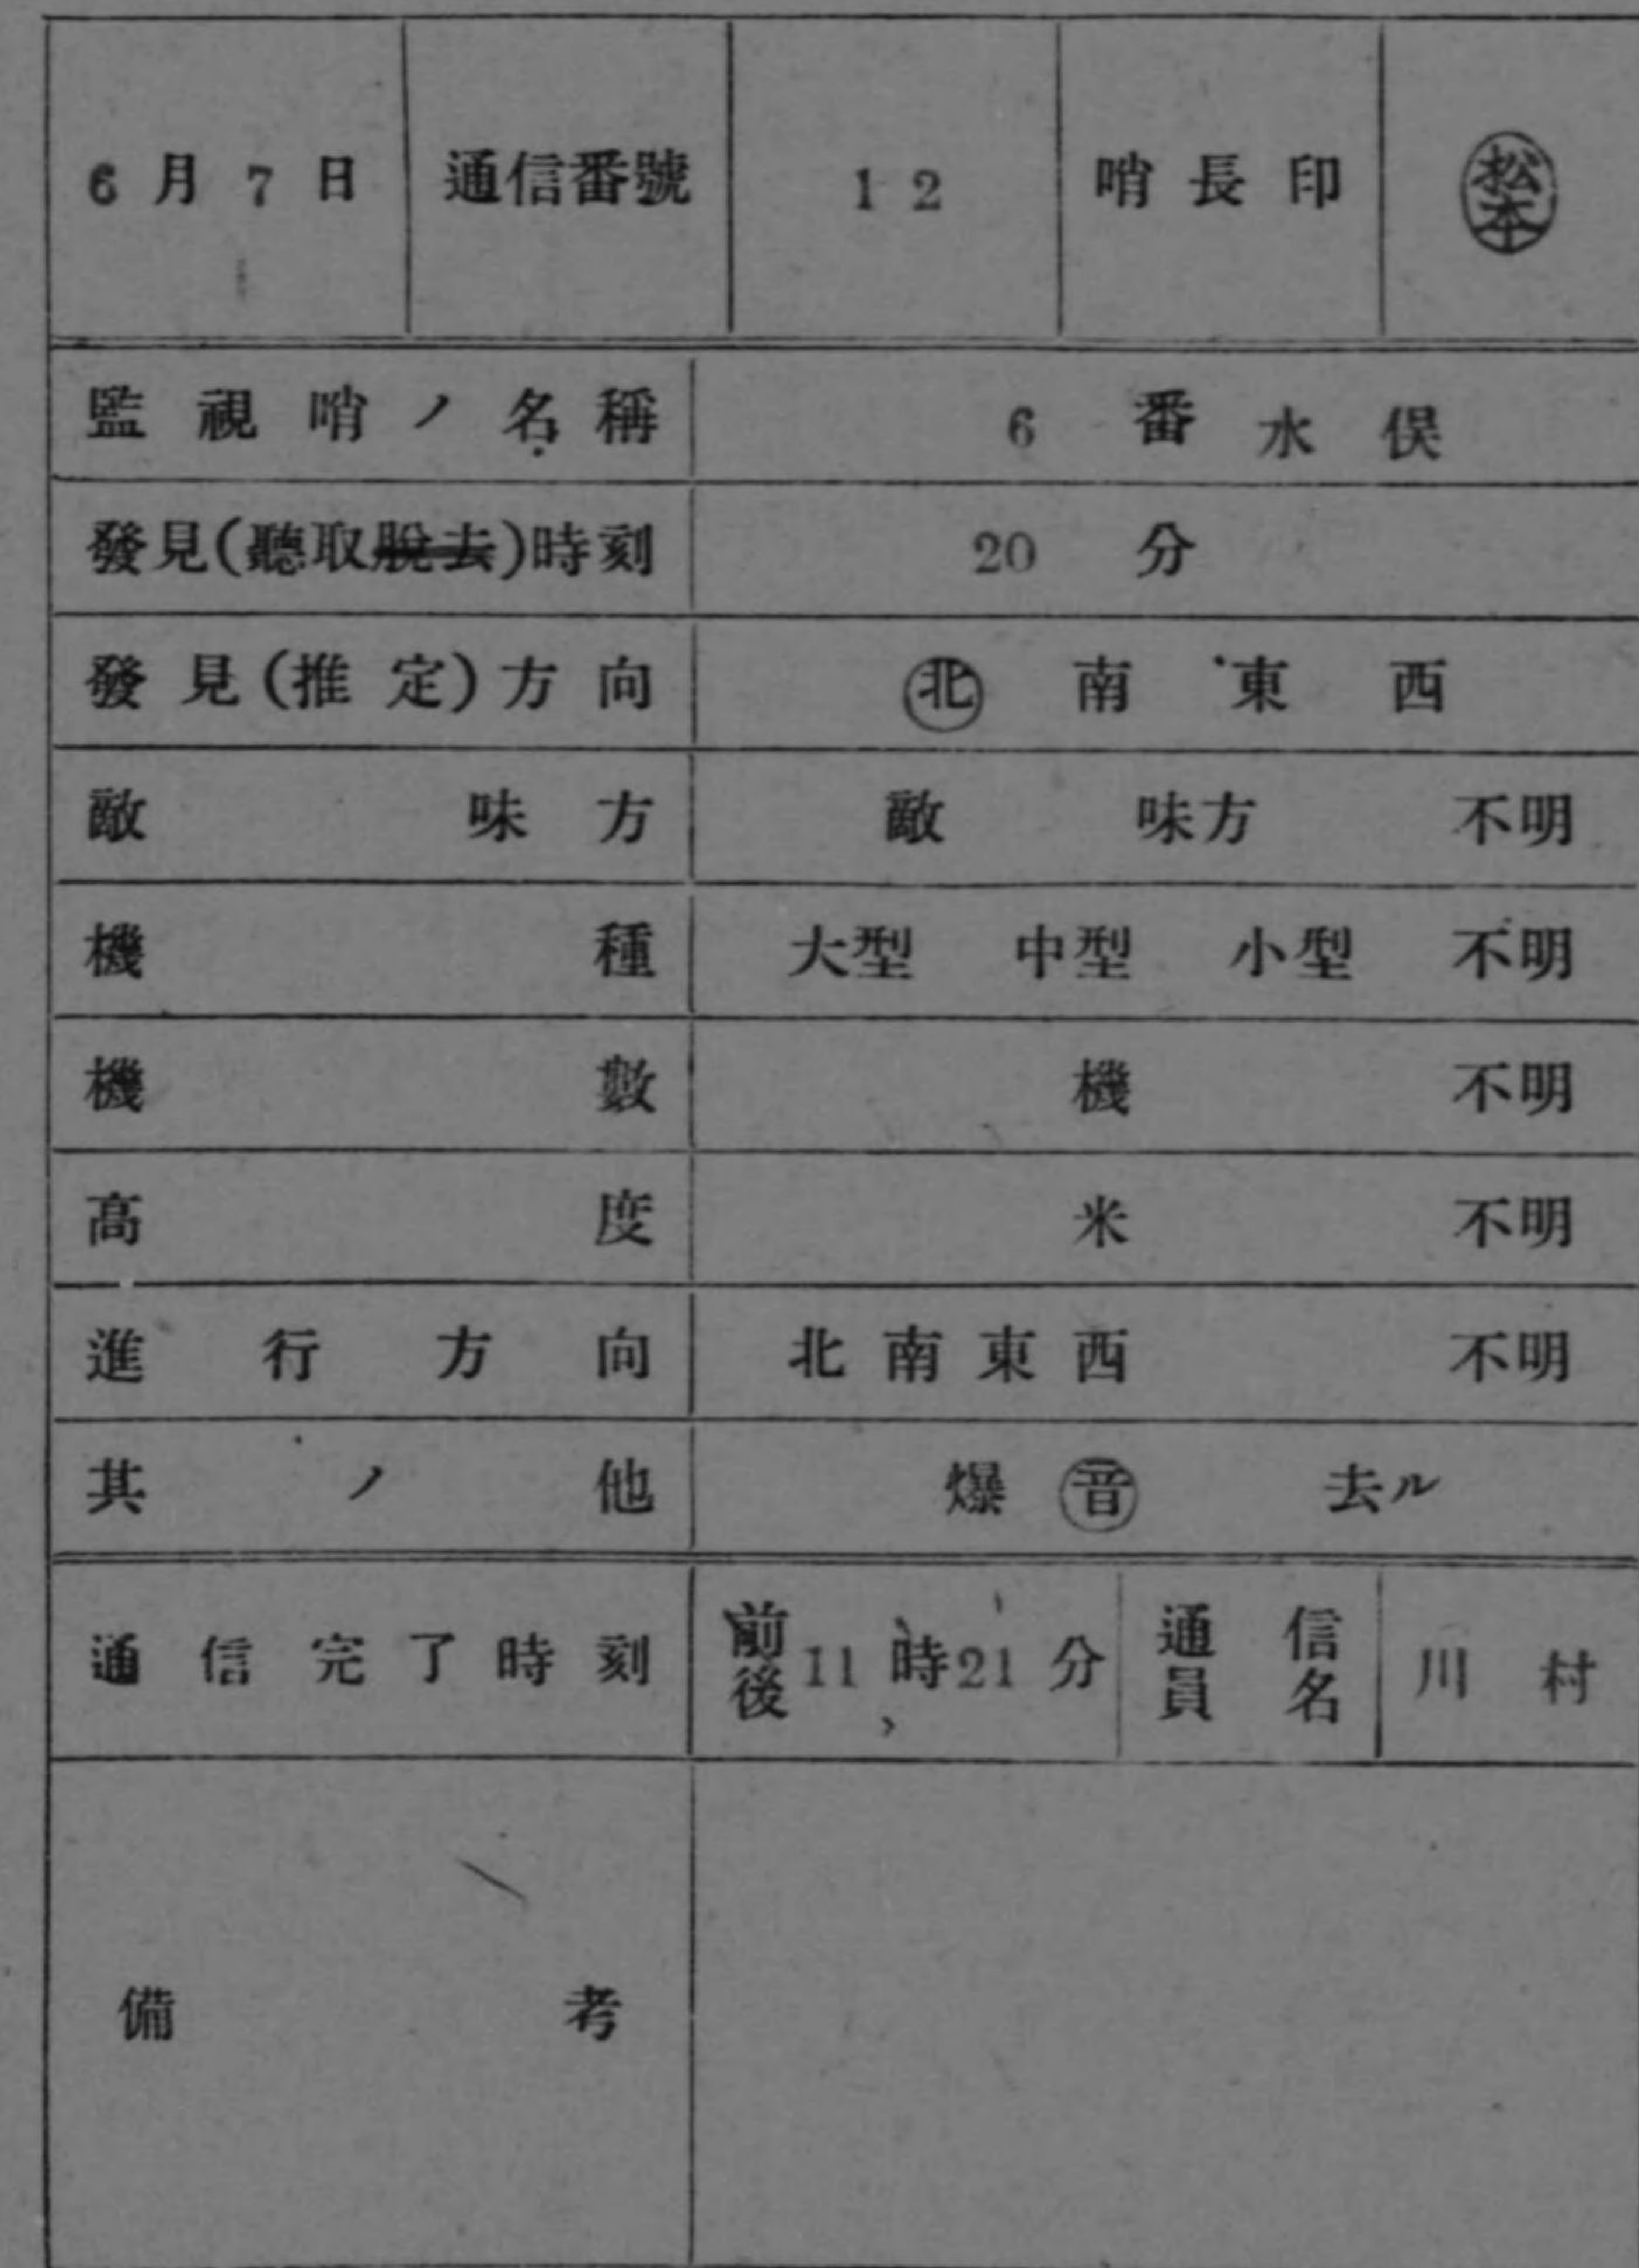 6月7日 通信番號 12 哨長印 松本
監視哨ノ名稱 6番水俣
發見(聽取脫去)時刻 20分
發見(推定)方向 北 南 東 西
敵味方 敵 味方 不明
機種 大型 中型 小型 不明
機數 機 不明
高度 米 不明
進行方向 北南東西 不明
其ノ他 爆音 去ル
通信完了時刻 前後11時21分 通信員名 川村
備考